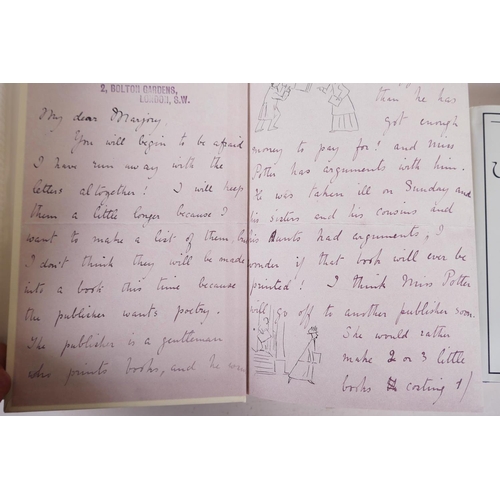 2, BOLTON GARDENS,
LONDON, S.W.
My dear Marjory
You will begin to be afraid
I have run away with the
letters altogether! I will keep
them a little longer because I
want to make a list of them, but
I don't think they will be made
into a book this time because
the publisher wants poetry.
The publisher is a gentleman
who prints books, and he wan
than he has
got enough
money to pay for! and Miss
Potter has arguments with him.
He was taken ill on Sunday and
his sisters and his cousins and
his Aunts had arguments, I
wonder if that book will ever be
printed! I think Miss Potter
will go off to another publisher soon.
She would rather
make 2 or 3 little
books costing 1/